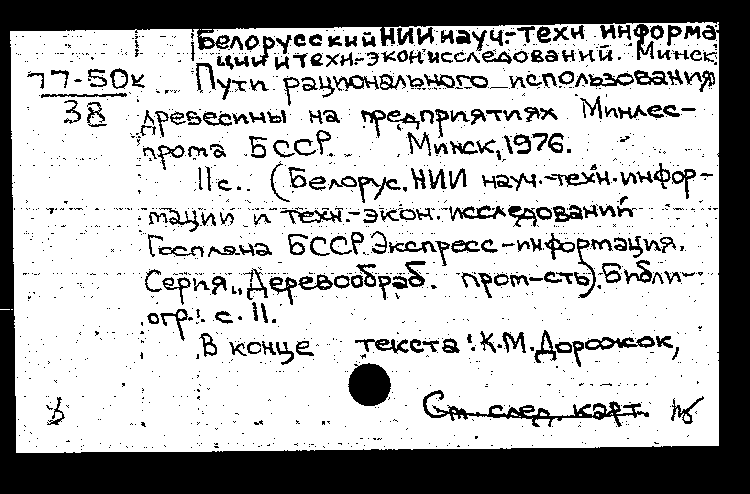 Белорусский НИИ науч.-техн информа
ции и техн.-экон исследований. Минск
77-50к Пути рационального использования
38 древесины на предприятиях Минлес-
прома БССР. Минск, 1976.
11 с. (Белорус. НИИ науч.-техн. инфор-
мации и техн.-экон. исследований
Госплана БССР. Экспресс-информация.
Серия „Деревообраб. пром-сть). Библи-
огр.: с. 11.
В конце текста: К.М. Дорожок,
См. след. карт.